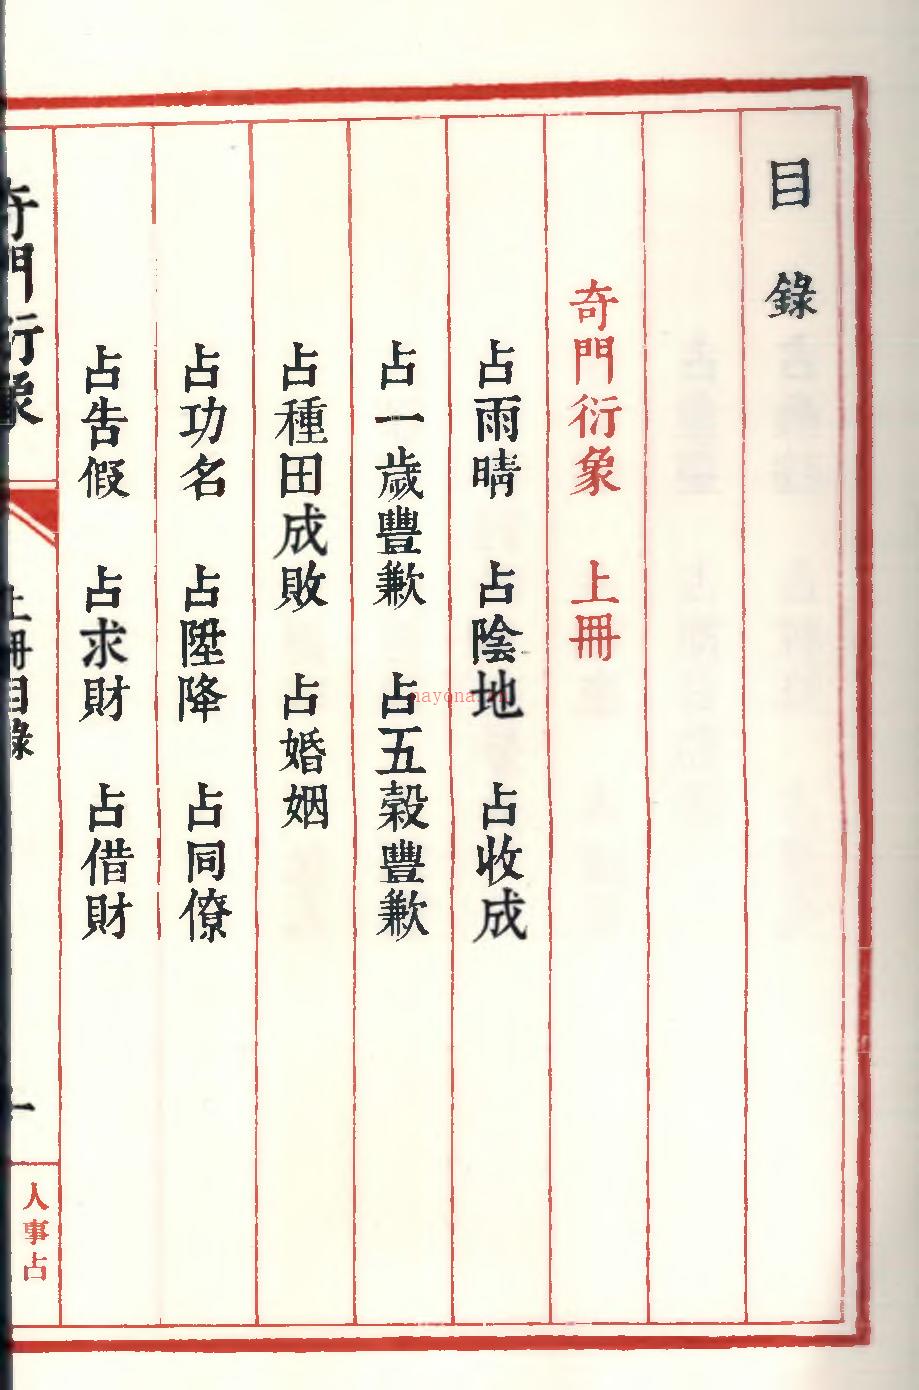 目錄
奇門衍象 上冊
占雨晴 占陰地 占收成
占一歲豐歉 占五穀豐歉
占種田成敗 占婚姻
占功名 占陞降 占同僚
占告假 占求財 占借財
奇門衍象 上冊目錄 一 人事占
nayona